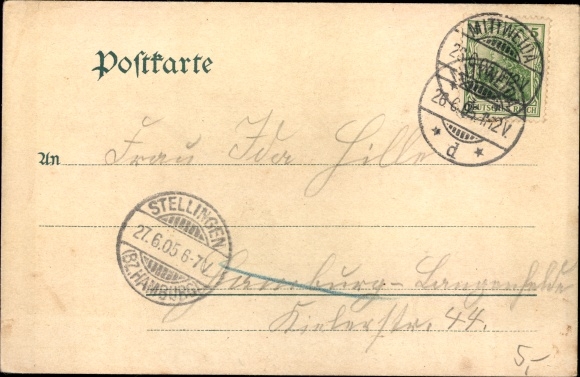 Postkarte
MITTWEIDA
26.6.05.11-12V.
* d *
DEUTSCHES REICH
5
An Frau Ida Hille
STELLINGEN
27.6.05 6-7V.
(BZ. HAMBURG)
Hamburg-Langenfelde
Kielerstr. 44.
5,-